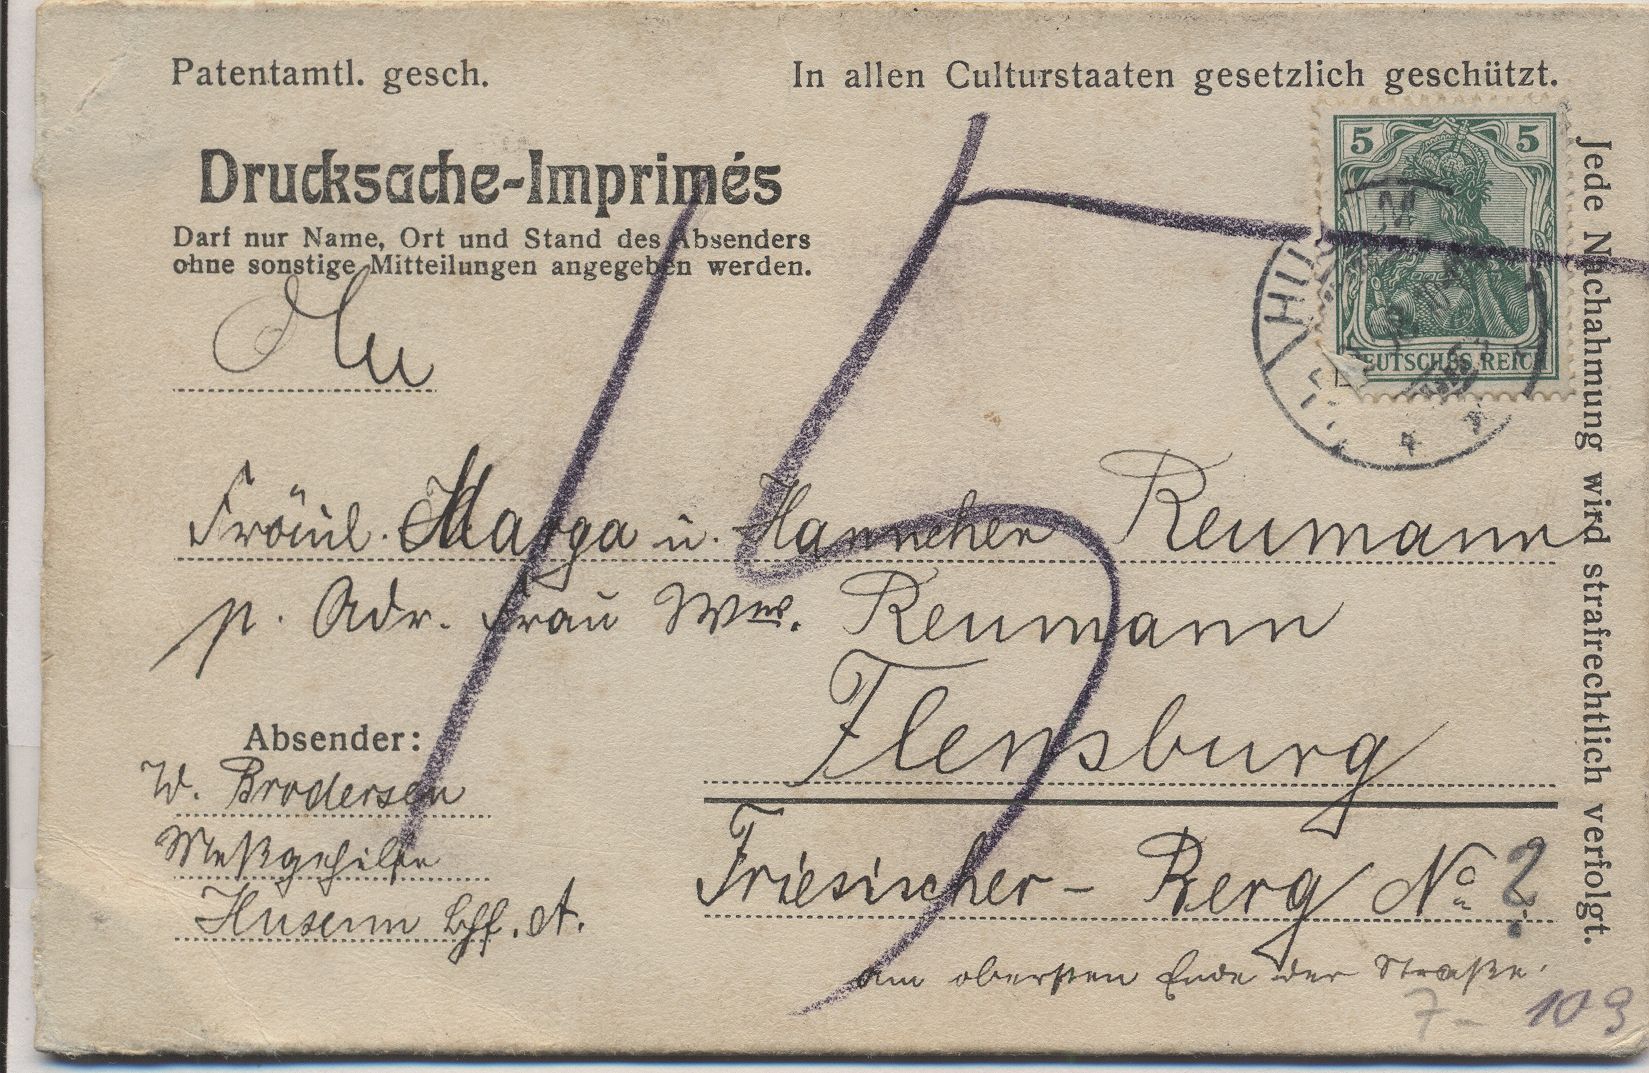 Patentamtl. gesch.
In allen Culturstaaten gesetzlich geschützt.
Drucksache-Imprimés
Darf nur Name, Ort und Stand des Absenders
ohne sonstige Mitteilungen angegeben werden.
An
5 5
DEUTSCHES REICH
HUSUM
15
Fräul. Marga u. Hannchen Reumann
p. Adr. Frau Wwe. Reumann
Flensburg
Friesischer-Berg No ?
am obersten Ende der Straße.
Absender:
W. Brodersen
Meßgehilfe
Husum Bhf. A.
Jede Nachahmung wird strafrechtlich verfolgt.
7- 109